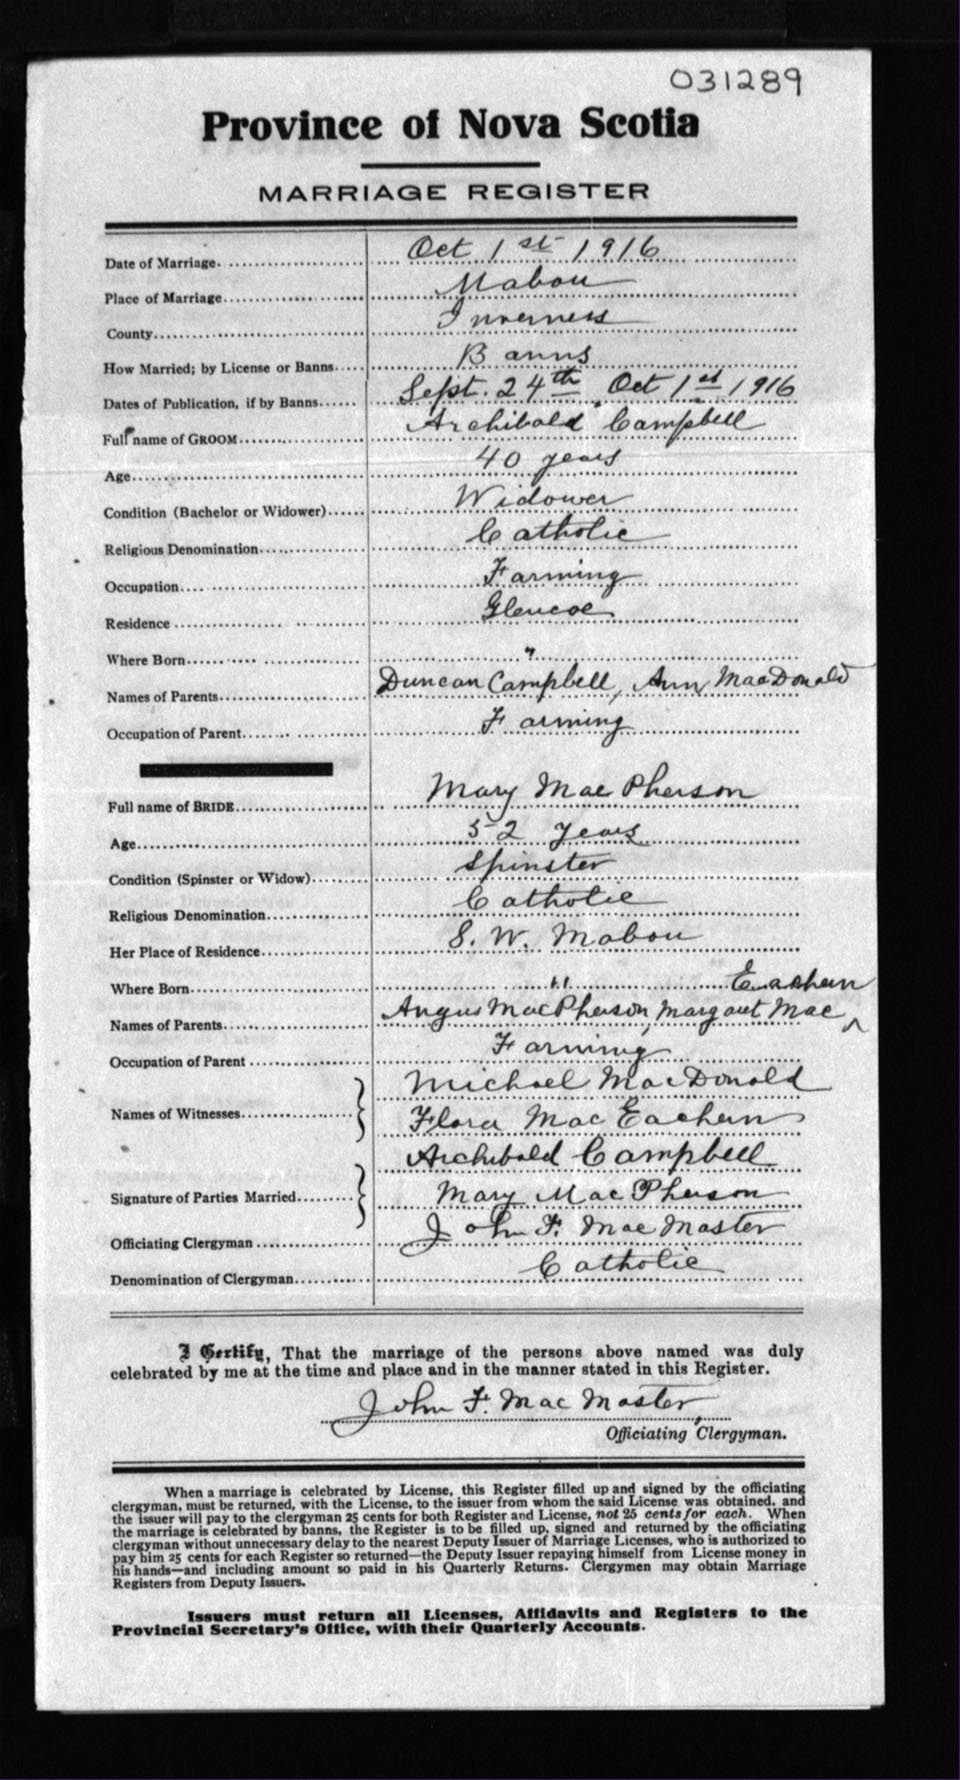 031289
Province of Nova Scotia
MARRIAGE REGISTER
Date of Marriage. Oct 1st 1916
Place of Marriage Mabou
County Inverness
How Married; by License or Banns Banns
Dates of Publication, if by Banns Sept. 24th, Oct 1st 1916
Full name of GROOM Archibald Campbell
Age 40 years
Condition (Bachelor or Widower) Widower
Religious Denomination Catholic
Occupation Farming
Residence Glencoe
Where Born "
Names of Parents Duncan Campbell, Ann MacDonald
Occupation of Parent Farming
Full name of BRIDE Mary MacPherson
Age 52 years
Condition (Spinster or Widow) Spinster
Religious Denomination Catholic
Her Place of Residence S. W. Mabou
Where Born "
Names of Parents Angus MacPherson, Margaret Mac ^ Eachern
Occupation of Parent Farming
Names of Witnesses Michael MacDonald
Flora MacEachern
Signature of Parties Married Archibald Campbell
Mary MacPherson
Officiating Clergyman John F. MacMaster
Denomination of Clergyman Catholic
I Certify, That the marriage of the persons above named was duly
celebrated by me at the time and place and in the manner stated in this Register.
John F. MacMaster,
Officiating Clergyman.
When a marriage is celebrated by License, this Register filled up and signed by the officiating
clergyman, must be returned, with the License, to the issuer from whom the said License was obtained, and
the issuer will pay to the clergyman 25 cents for both Register and License, not 25 cents for each. When
the marriage is celebrated by banns, the Register is to be filled up, signed and returned by the officiating
clergyman without unnecessary delay to the nearest Deputy Issuer of Marriage Licenses, who is authorized to
pay him 25 cents for each Register so returned—the Deputy Issuer repaying himself from License money in
his hands—and including amount so paid in his Quarterly Returns. Clergymen may obtain Marriage
Registers from Deputy Issuers.
Issuers must return all Licenses, Affidavits and Registers to the
Provincial Secretary's Office, with their Quarterly Accounts.